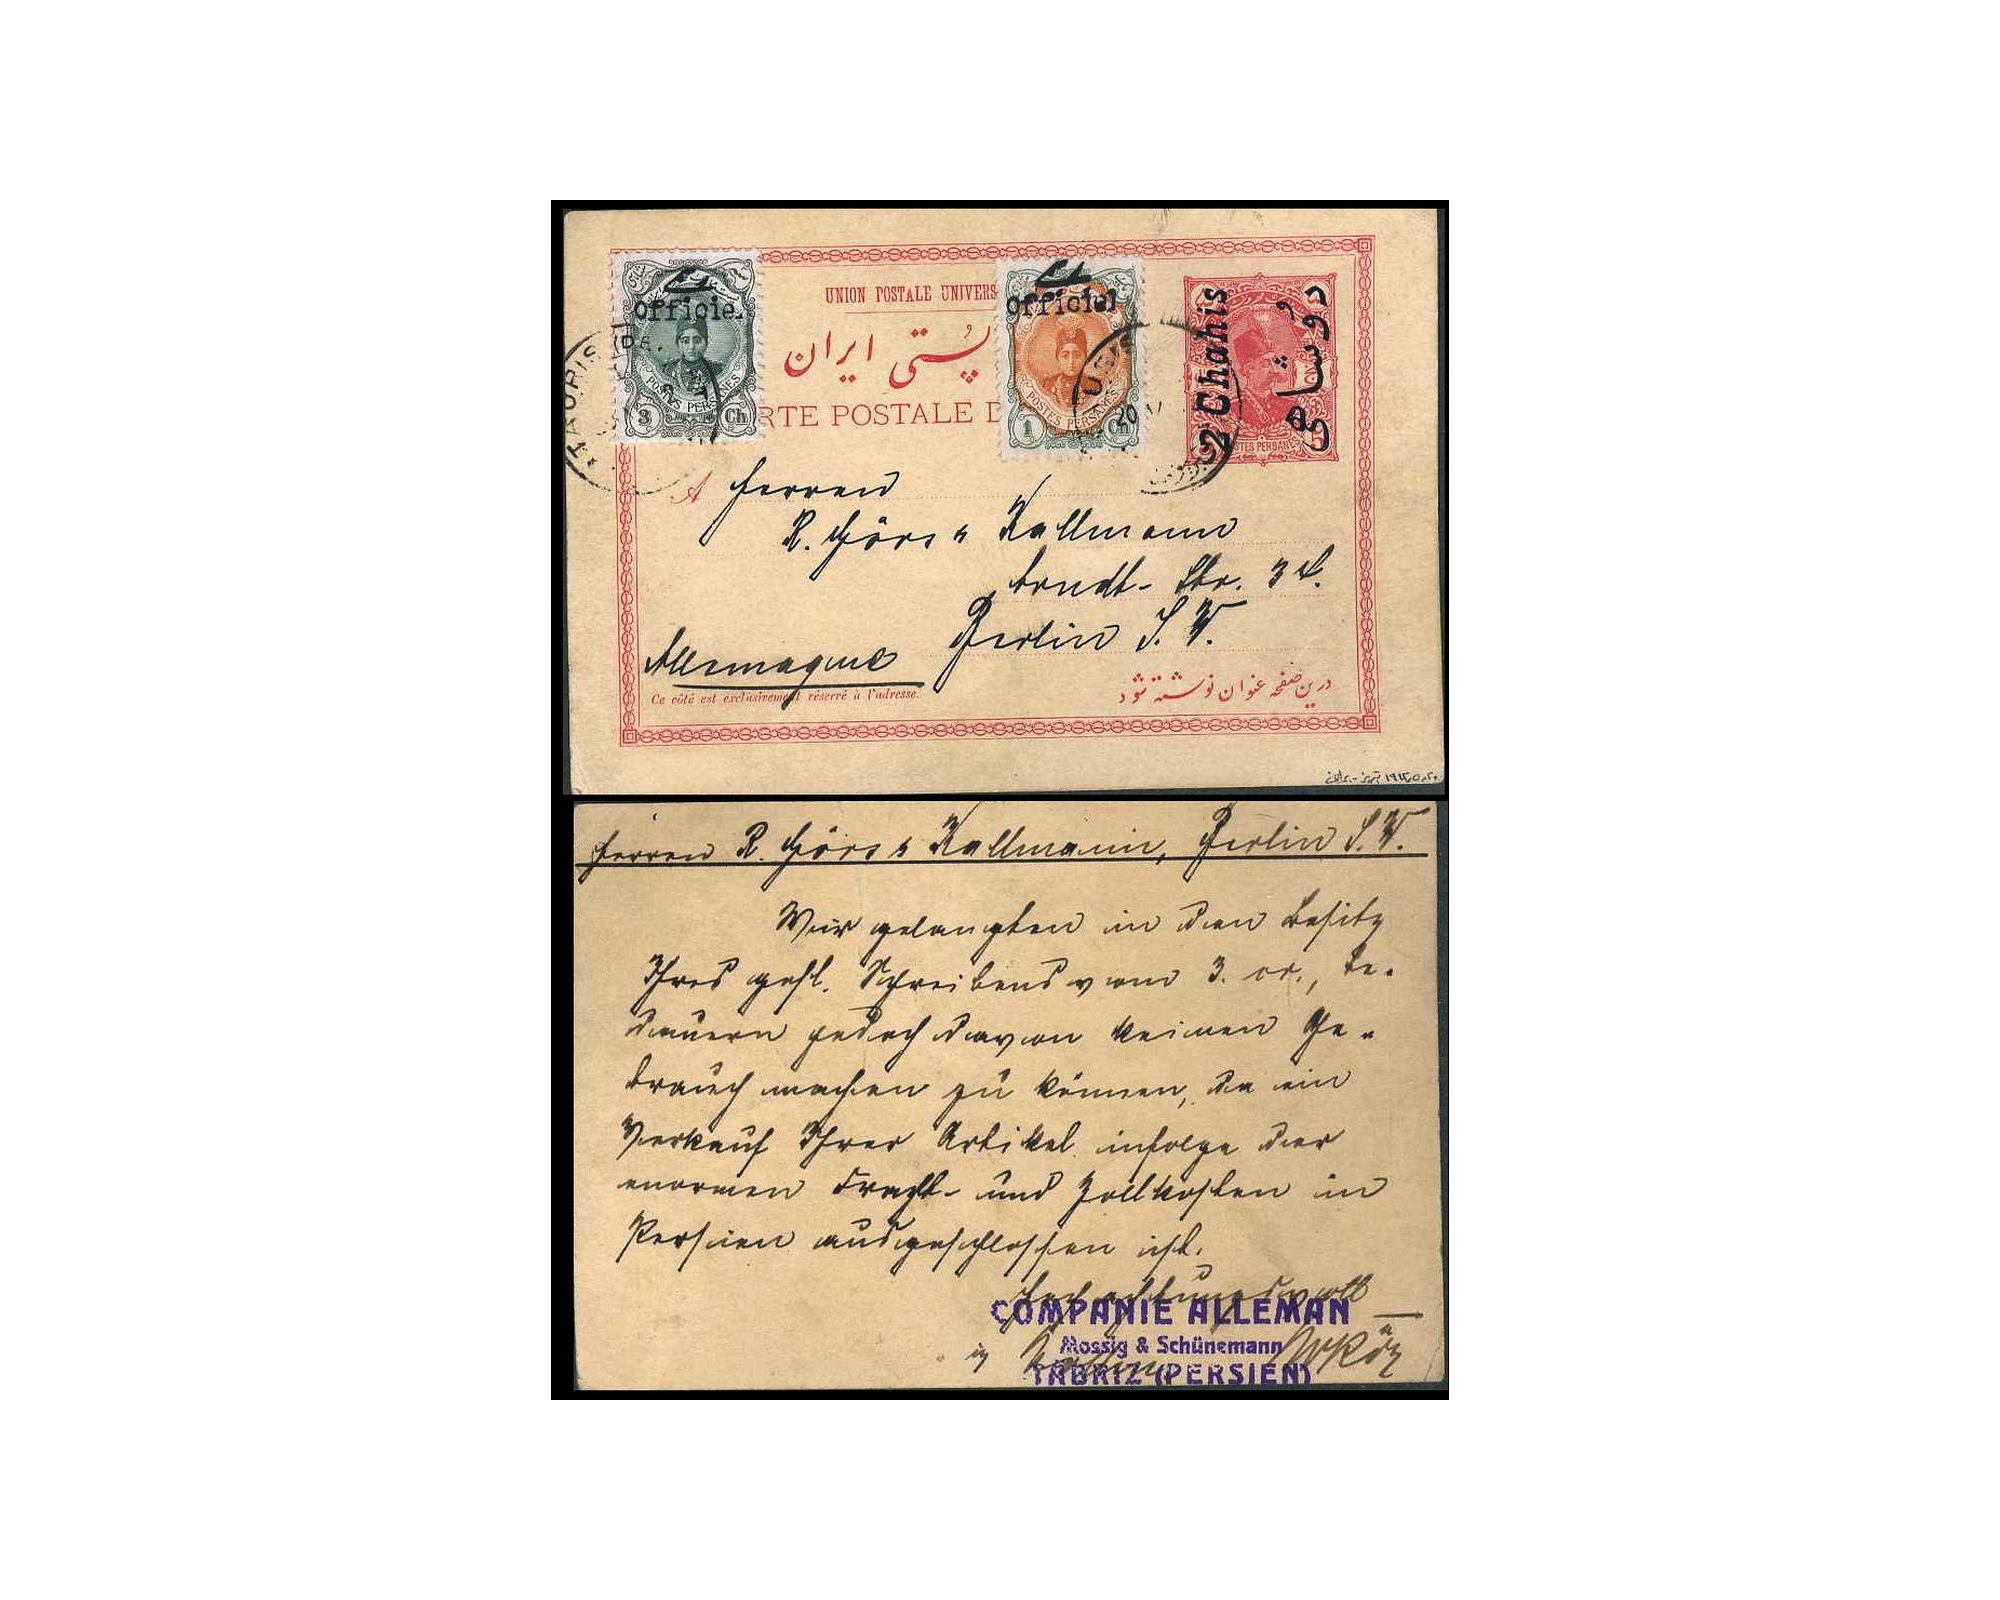 UNION POSTALE UNIVERS
پستی ایران
RTE POSTALE D
رسمی
Officiel
POSTES PERSANES
3 Ch
رسمی
Officiel
POSTES PERSANES
1 Ch
2 Chahis
دوشاهی
POSTES PERSANES
TAURIS
A Herren
R. Görs & Kallmann
Arndt-Str. 34.
Berlin S. W.
Allemagne
Ce côté est exclusivement réservé à l'adresse.
درین صفحه عنوان نوشته شود
Herren R. Görs & Kallmann, Berlin S. W.
Wir gelangten in den Besitz
Ihres gefl. Schreibens vom 3. cr., be-
dauern jedoch davon keinen Ge-
brauch machen zu können, da ein
Verkauf Ihrer Artikel infolge der
enormen Fracht- und Zollkosten in
Persien ausgeschlossen ist.
Hochachtungsvoll
COMPANIE ALLEMAN
Mossig & Schünemann
TABRIZ (PERSIEN)